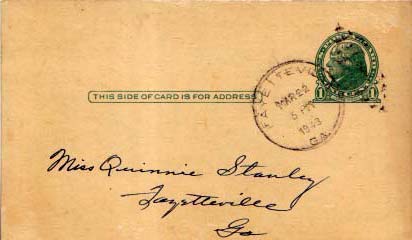 THIS SIDE OF CARD IS FOR ADDRESS
FAYETTEVILLE
MAR 22
5 PM
1933
GA.
1 1
Miss Quinnie Stanley
Fayetteville
Ga